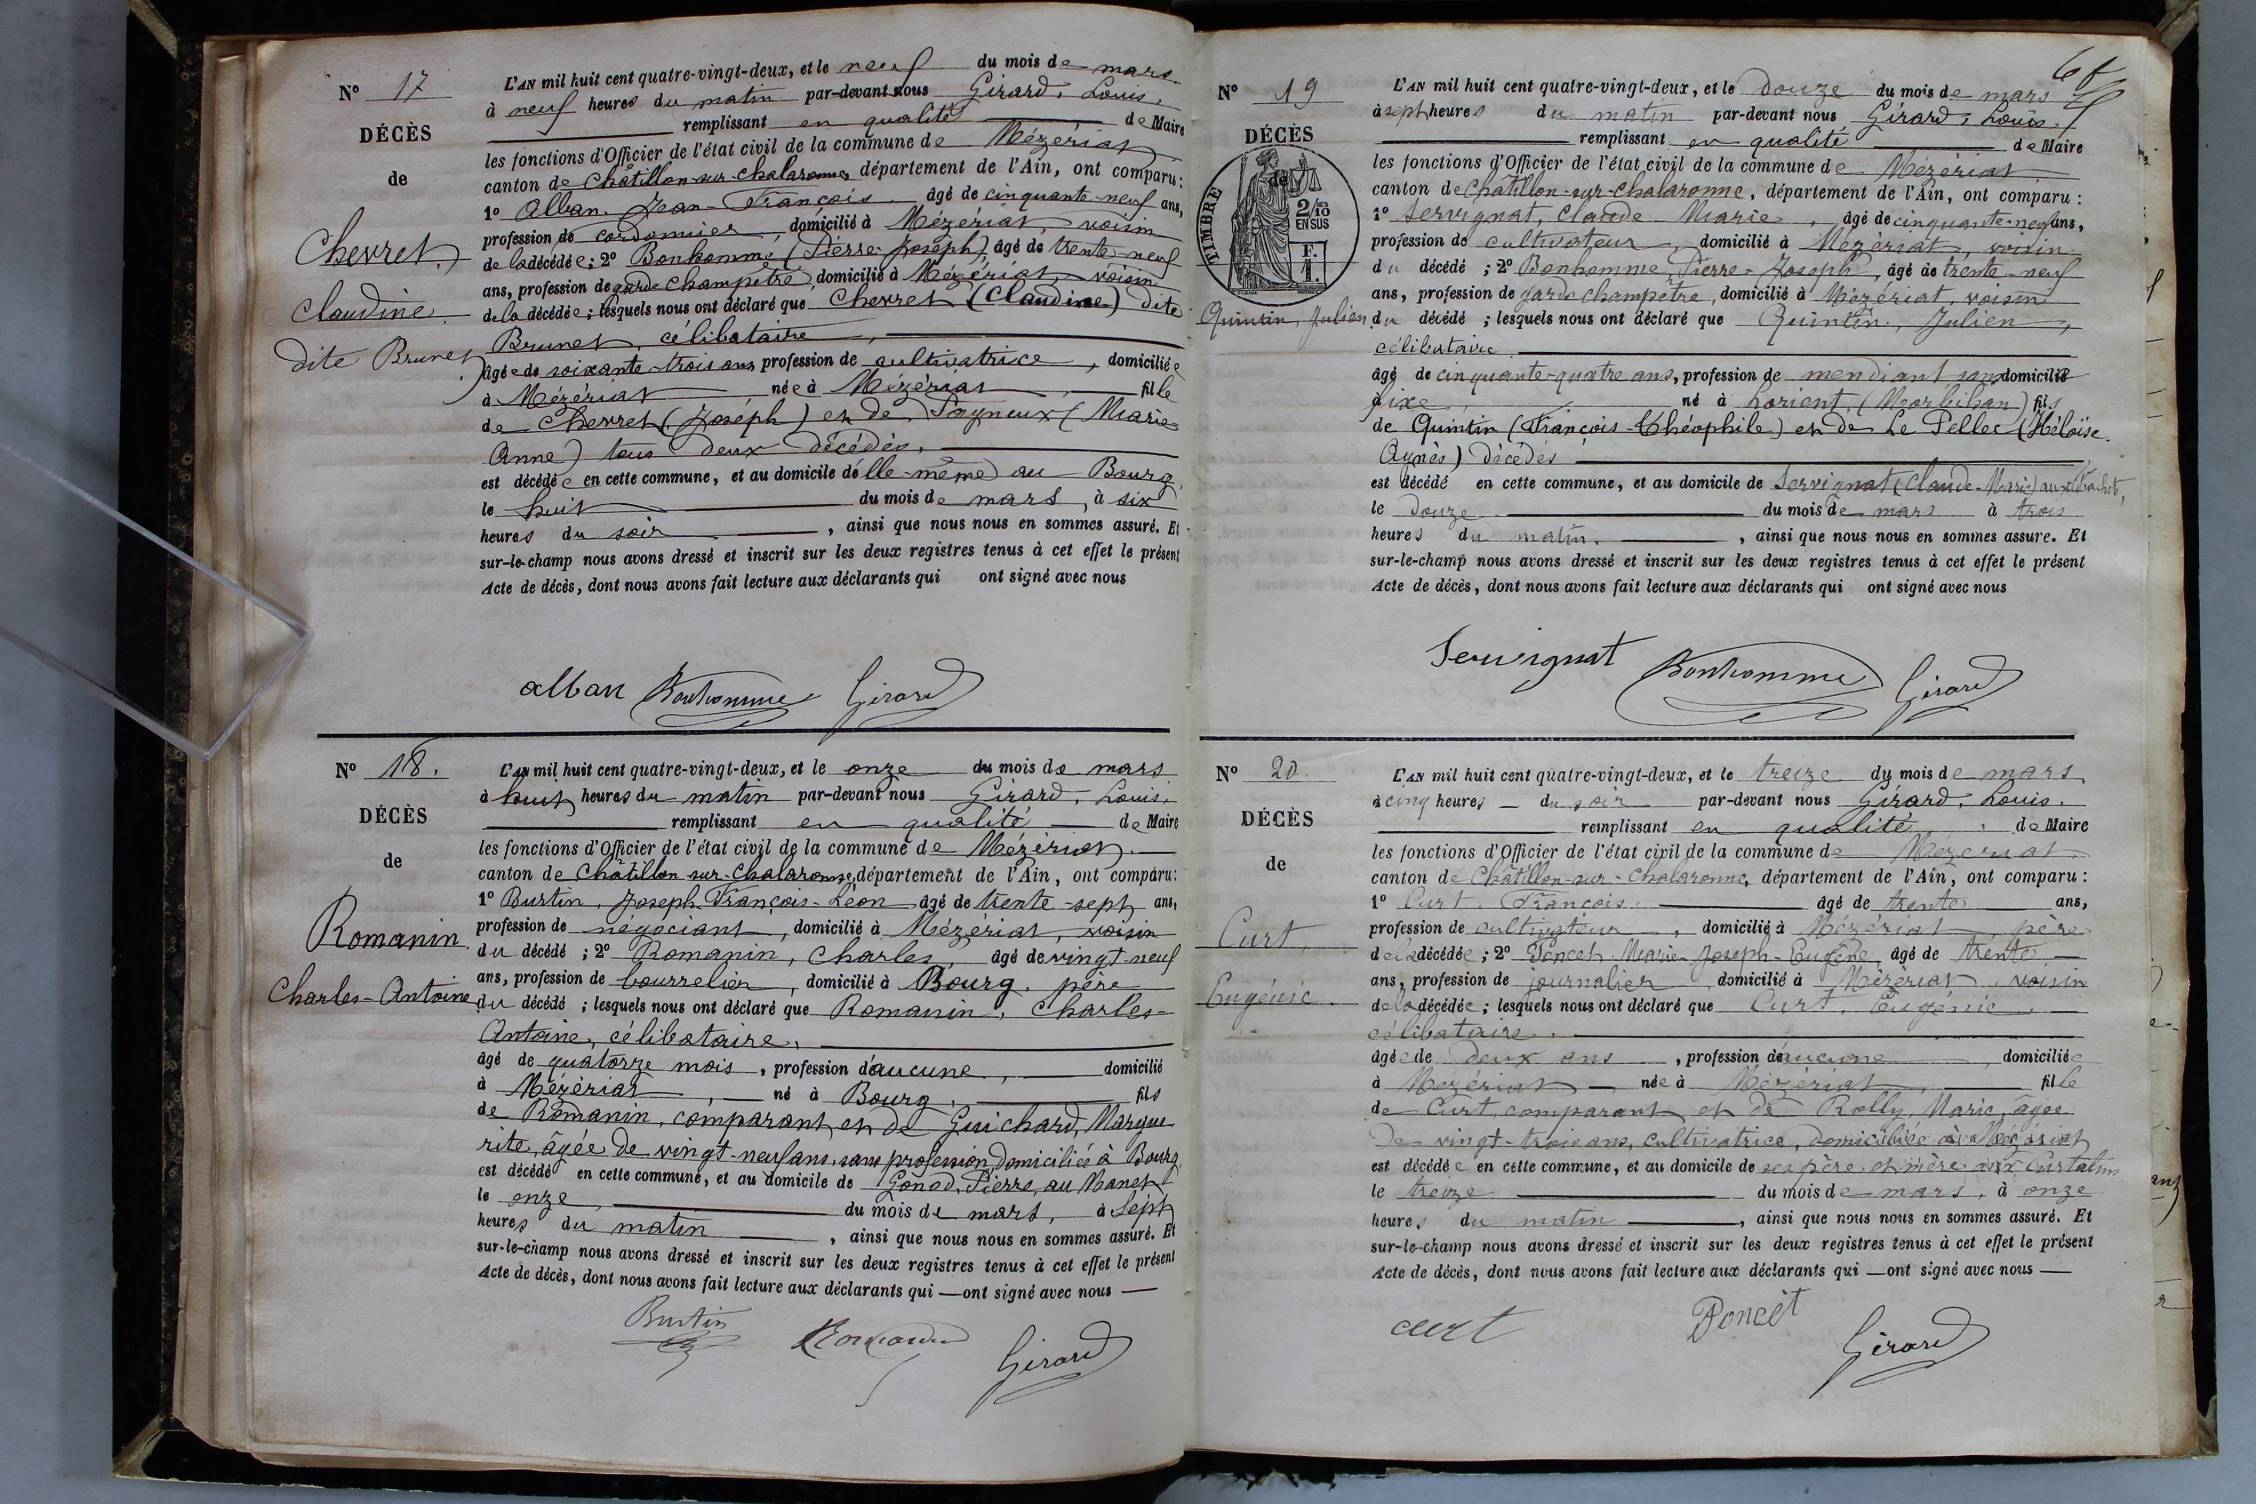 N° 17
DÉCÈS
de
Chevret,
Claudine
dite Brunet
L'AN mil huit cent quatre-vingt-deux, et le neuf du mois de mars
à neuf heures du matin par-devant nous Girard, Louis,
remplissant en qualité de Maire
les fonctions d'Officier de l'état civil de la commune de Mézériat
canton de Châtillon-sur-Chalaronne, département de l'Ain, ont comparu :
1° Alban, Jean-François âgé de cinquante-neuf ans,
profession de cordonnier, domicilié à Mézériat, voisin
de la décédée ; 2° Bonhomme, (Pierre-Joseph), âgé de trente-neuf
ans, profession de garde champêtre, domicilié à Mézériat, voisin
de la décédée ; lesquels nous ont déclaré que Chevret (Claudine) dite
Brunet, célibataire,
âgée de soixante-trois ans, profession de cultivatrice, domiciliée
à Mézériat née à Mézériat, fille
de Chevret (Joseph) et de Payneux (Marie
Anne) tous deux décédés,
est décédée en cette commune, et au domicile d'elle-même au Bourg,
le huit du mois de mars, à six
heures du soir, ainsi que nous nous en sommes assuré. Et
sur-le-champ nous avons dressé et inscrit sur les deux registres tenus à cet effet le présent
Acte de décès, dont nous avons fait lecture aux déclarants qui ont signé avec nous
alban Bonhomme Girard
N° 18.
DÉCÈS
de
Romanin
Charles-Antoine
L'AN mil huit cent quatre-vingt-deux, et le onze du mois de mars
à huit heures du matin par-devant nous Girard, Louis,
remplissant en qualité de Maire
les fonctions d'Officier de l'état civil de la commune de Mézériat
canton de Châtillon-sur-Chalaronne, département de l'Ain, ont comparu :
1° Burtin, Joseph-François-Léon âgé de trente-sept ans,
profession de négociant, domicilié à Mézériat, voisin
du décédé ; 2° Romanin, Charles, âgé de vingt-neuf
ans, profession de bourrelier, domicilié à Bourg, père
du décédé ; lesquels nous ont déclaré que Romanin, Charles-
Antoine, célibataire,
âgé de quatorze mois, profession d'aucune, domicilié
à Mézériat, né à Bourg, fils
de Romanin, comparant et de Guichard, Margue
rite, âgée de vingt-neuf ans, sans profession, domiciliée à Bourg
est décédé en cette commune, et au domicile de Gonod, Pierre, au Manet
le onze, du mois de mars, à sept
heures du matin, ainsi que nous nous en sommes assuré. Et
sur-le-champ nous avons dressé et inscrit sur les deux registres tenus à cet effet le présent
Acte de décès, dont nous avons fait lecture aux déclarants qui — ont signé avec nous —
Burtin Romanin Girard
N° 19
DÉCÈS
de
TIMBRE
2/10
EN SUS
F.
1.
Quintin, Julien
L'AN mil huit cent quatre-vingt-deux, et le douze du mois de mars
à sept heures du matin par-devant nous Girard, Louis.
remplissant en qualité de Maire
les fonctions d'Officier de l'état civil de la commune de Mézériat
canton de Châtillon-sur-Chalaronne, département de l'Ain, ont comparu :
1° Servignat, Claude Marie, âgé de cinquante-neuf ans,
profession de cultivateur, domicilié à Mézériat, voisin
du décédé ; 2° Bonhomme, Pierre-Joseph, âgé de trente-neuf
ans, profession de garde champêtre, domicilié à Mézériat, voisin
du décédé ; lesquels nous ont déclaré que Quintin, Julien,
célibataire
âgé de cinquante-quatre ans, profession de mendiant sans domicilié
fixe, né à Lorient (Morbihan) fils
de Quintin (François-Théophile) et de Le Pellec (Héloïse
Agnès) décédés
est décédé en cette commune, et au domicile de Servignat (Claude-Marie) aux
le douze du mois de mars à trois
heures du matin, ainsi que nous nous en sommes assuré. Et
sur-le-champ nous avons dressé et inscrit sur les deux registres tenus à cet effet le présent
Acte de décès, dont nous avons fait lecture aux déclarants qui ont signé avec nous
Servignat Bonhomme Girard
N° 20.
DÉCÈS
de
Curt,
Eugénie.
L'AN mil huit cent quatre-vingt-deux, et le treize du mois de mars
à cinq heures — du soir par-devant nous Girard, Louis.
remplissant en qualité de Maire
les fonctions d'Officier de l'état civil de la commune de Mézériat
canton de Châtillon-sur-Chalaronne, département de l'Ain, ont comparu :
1° Curt, François, âgé de trente ans,
profession de cultivateur, domicilié à Mézériat, père
de la décédée ; 2° Poncet Marie-Joseph-Eugène, âgé de trente
ans, profession de journalier, domicilié à Mézériat, voisin
de la décédée ; lesquels nous ont déclaré que Curt, Eugénie,
célibataire.
âgée de deux ans, profession d'aucune, domiciliée
à Mézériat — née à Mézériat, fille
de Curt, comparant et de Rolly, Marie, âgée
de vingt-trois ans, cultivatrice, domiciliée à Mézériat
est décédée en cette commune, et au domicile de ses père et mère aux Curtelins
le treize du mois de mars, à onze
heures du matin, ainsi que nous nous en sommes assuré. Et
sur-le-champ nous avons dressé et inscrit sur les deux registres tenus à cet effet le présent
Acte de décès, dont nous avons fait lecture aux déclarants qui — ont signé avec nous —
curt Poncet Girard